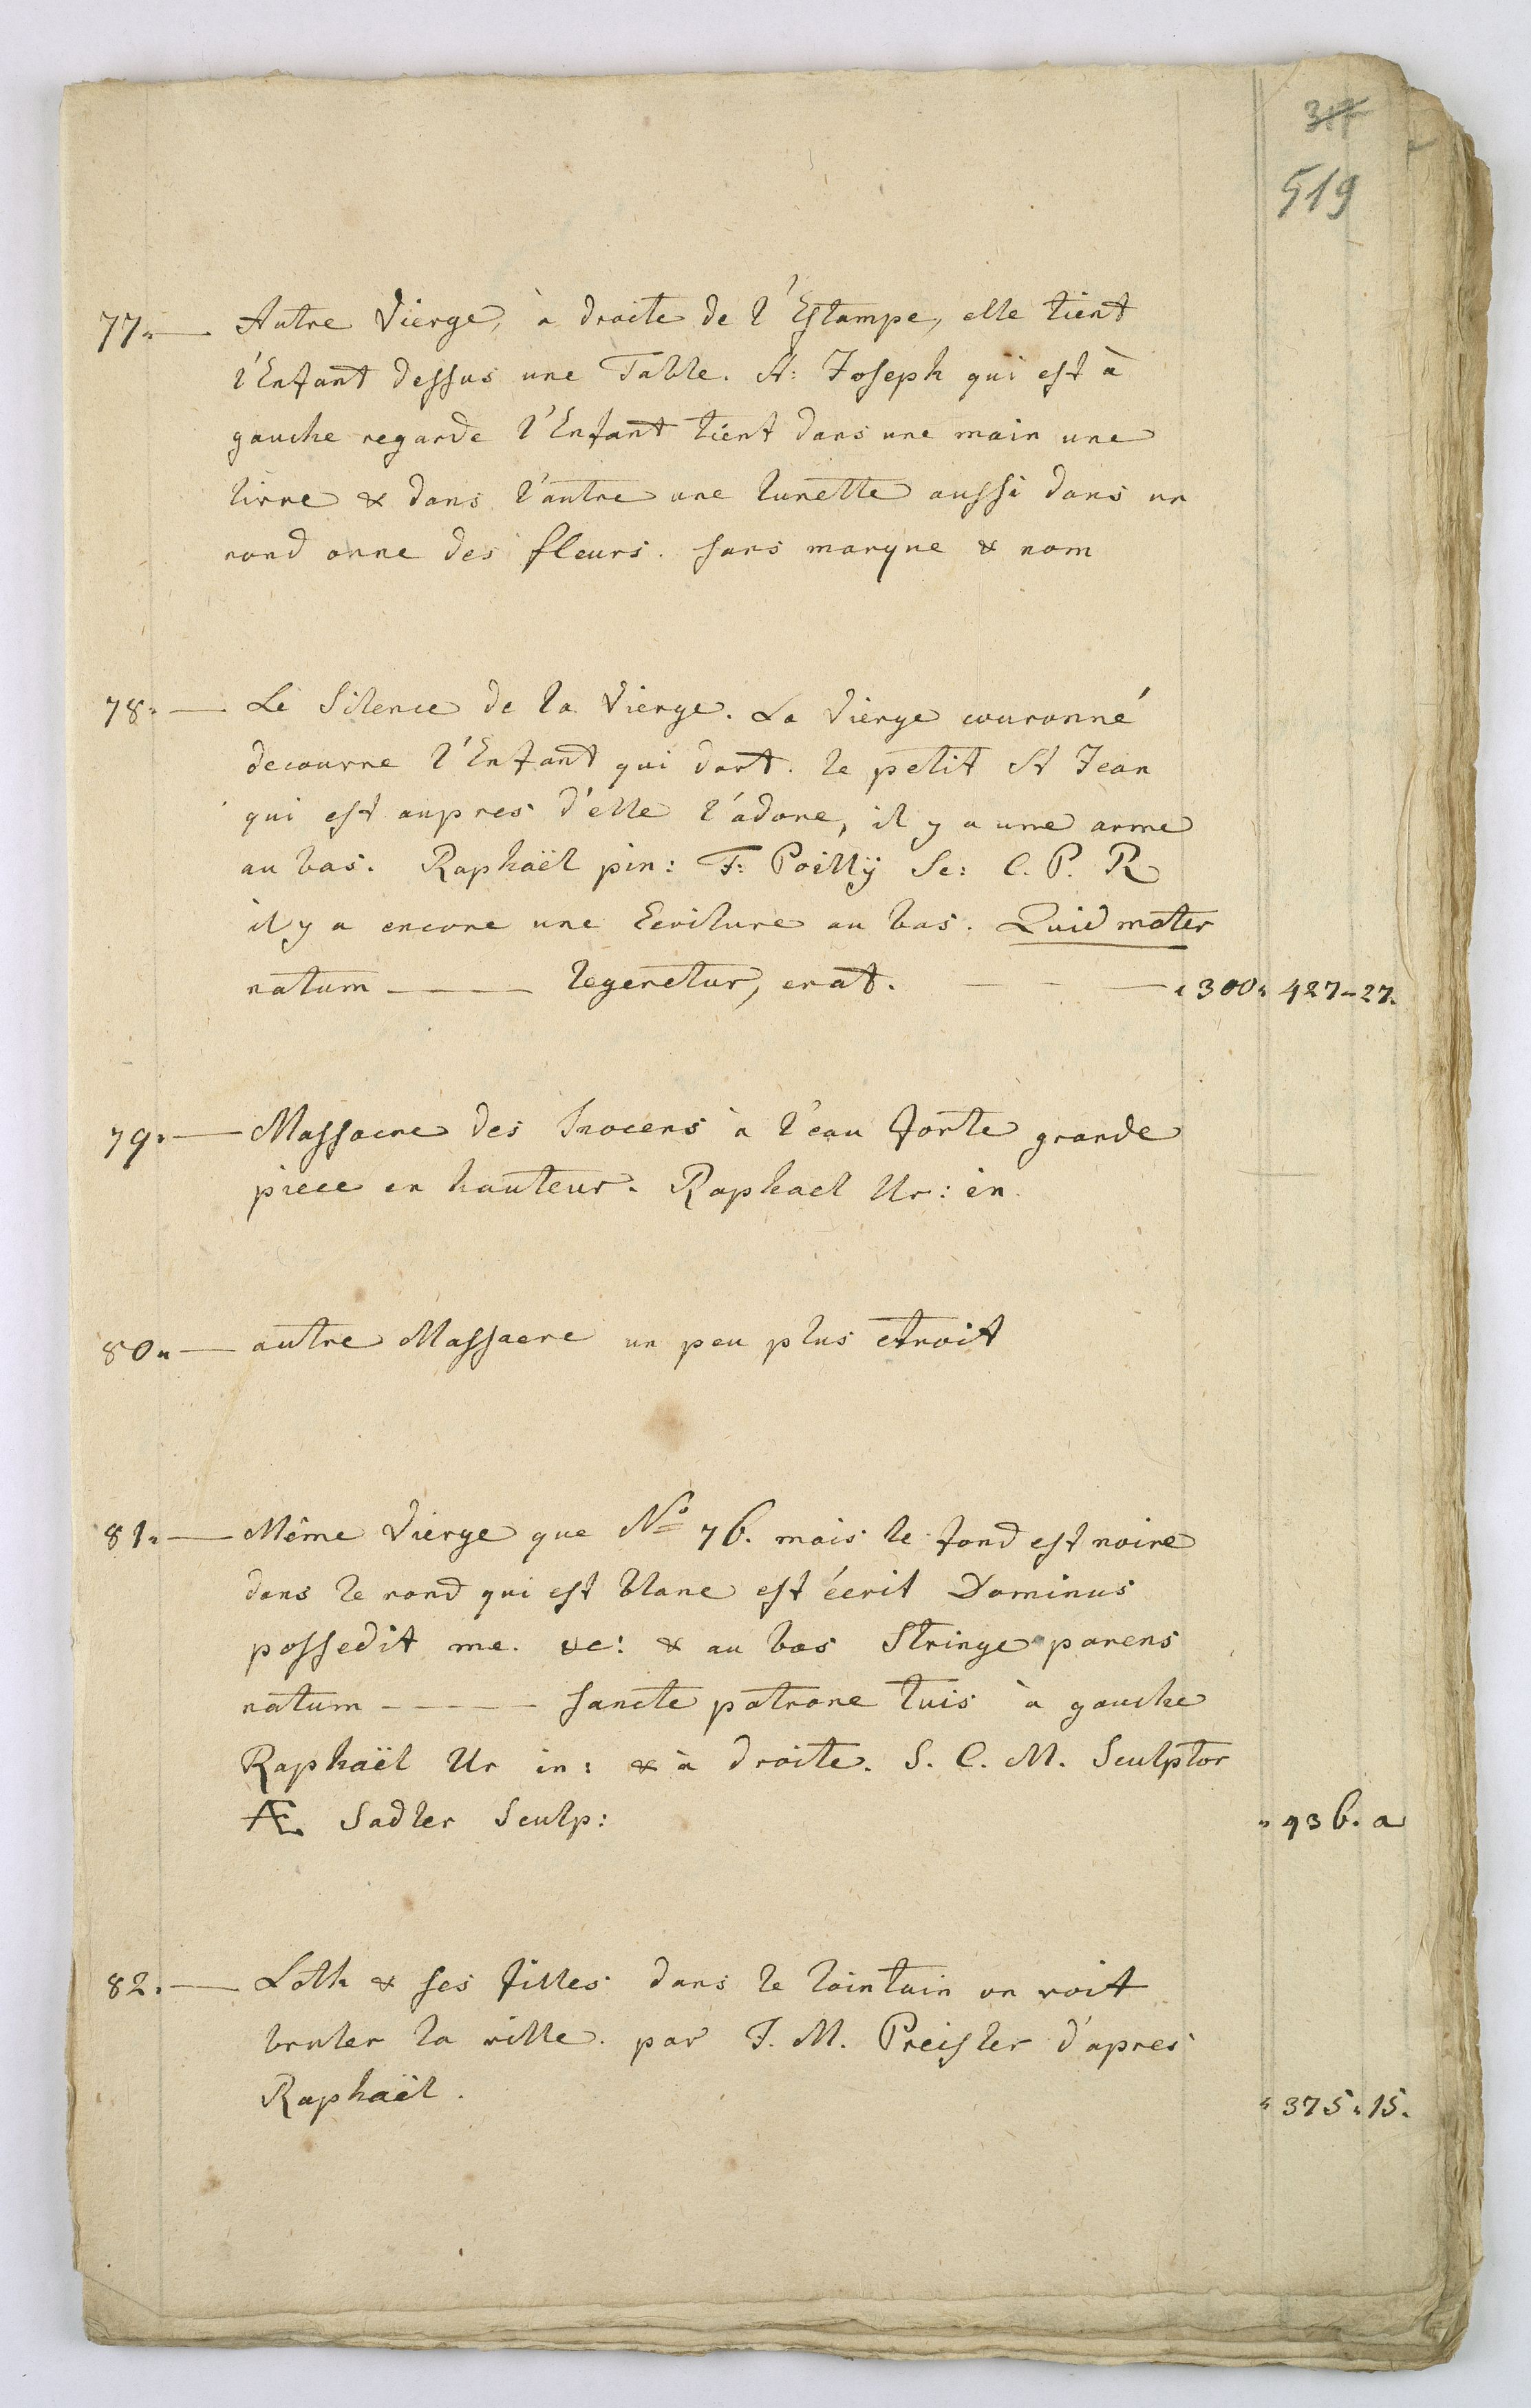 317
519
77. — Autre Vierge, à droite de l'Estampe, elle tient
l'Enfant dessus une Table. St: Joseph qui est à
gauche regarde l'Enfant tient dans une main une
livre & dans l'autre une lunette aussi dans un
rond orne des fleurs. sans marque & nom
78. — Le Silence de la Vierge. La Vierge couronné
decouvre l'Enfant qui dort. le petit St Jean
qui est aupres d'elle l'adore, il y a une arme
au bas. Raphaël pin: F: Poillÿ Sc: C. P. R
il y a encore une Ecriture au bas. Quid mater
natum ——— tegeretur, erat. — — — 300. 427-27.
79. — Massacre des Inocens à l'eau forte grande
piece en hauteur. Raphael Ur: in.
80. — autre Massacre un peu plus etroit
81. — Même Vierge que No 76. mais le fond est noire
dans le rond qui est blanc est écrit Dominus
possedit me. &c: & au bas Stringe parens
natum ——— sancte patrone tuis à gauche
Raphaël Ur in: & à droite. S. C. M. Sculptor
Æ. Sadler Sculp: 436. a
82. — Loth & ses filles dans le lointain on voit
bruler la ville. par J. M. Preisler d'apres
Raphaël. 375. 15.